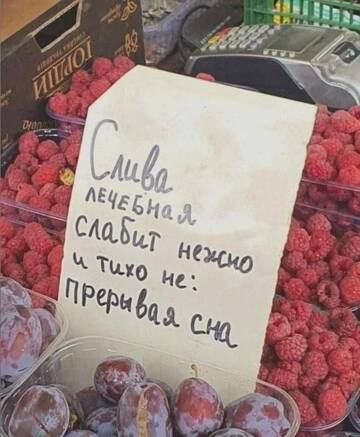 Слива
ЛЕЧЕБНАЯ
слабит нежно
и тихо не:
прерывая сна